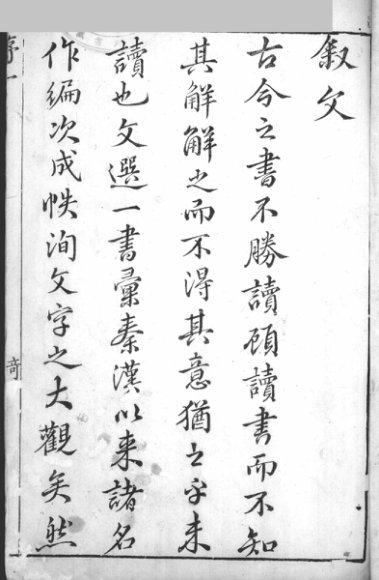 叙文
古今之書不勝讀顧讀書而不知
其解解之而不得其意猶之乎未
讀也文選一書彙秦漢以来諸名
作編次成帙洵文字之大觀矣然
序一